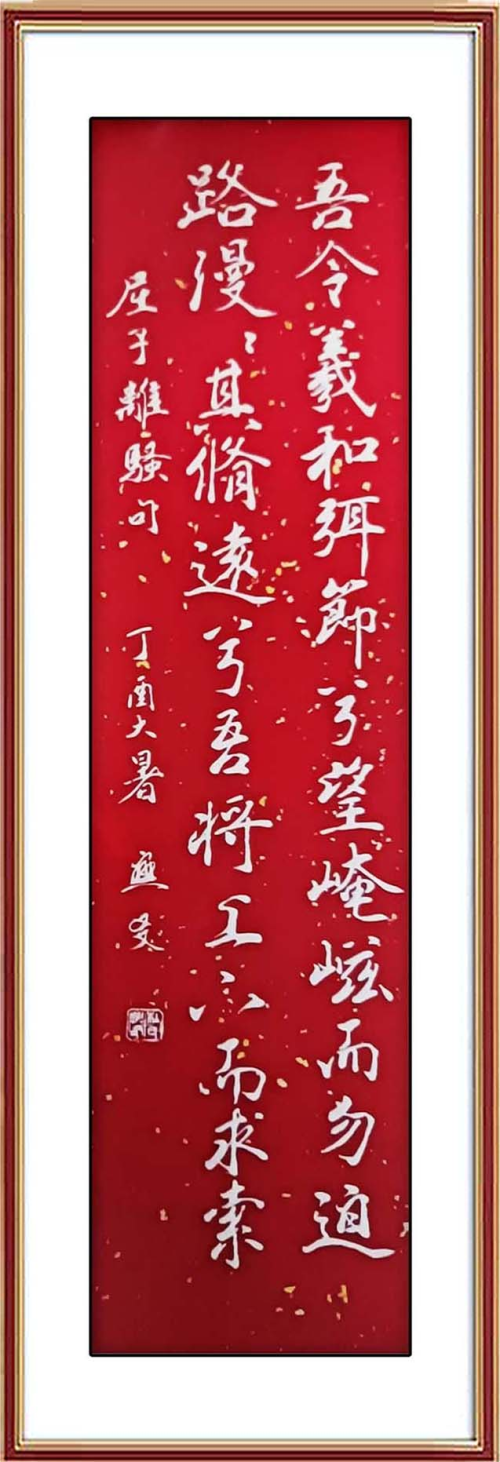 吾令羲和弭節兮望崦嵫而勿迫
路漫〻其脩遠兮吾将上下而求索
屈子離騷句 丁酉大暑